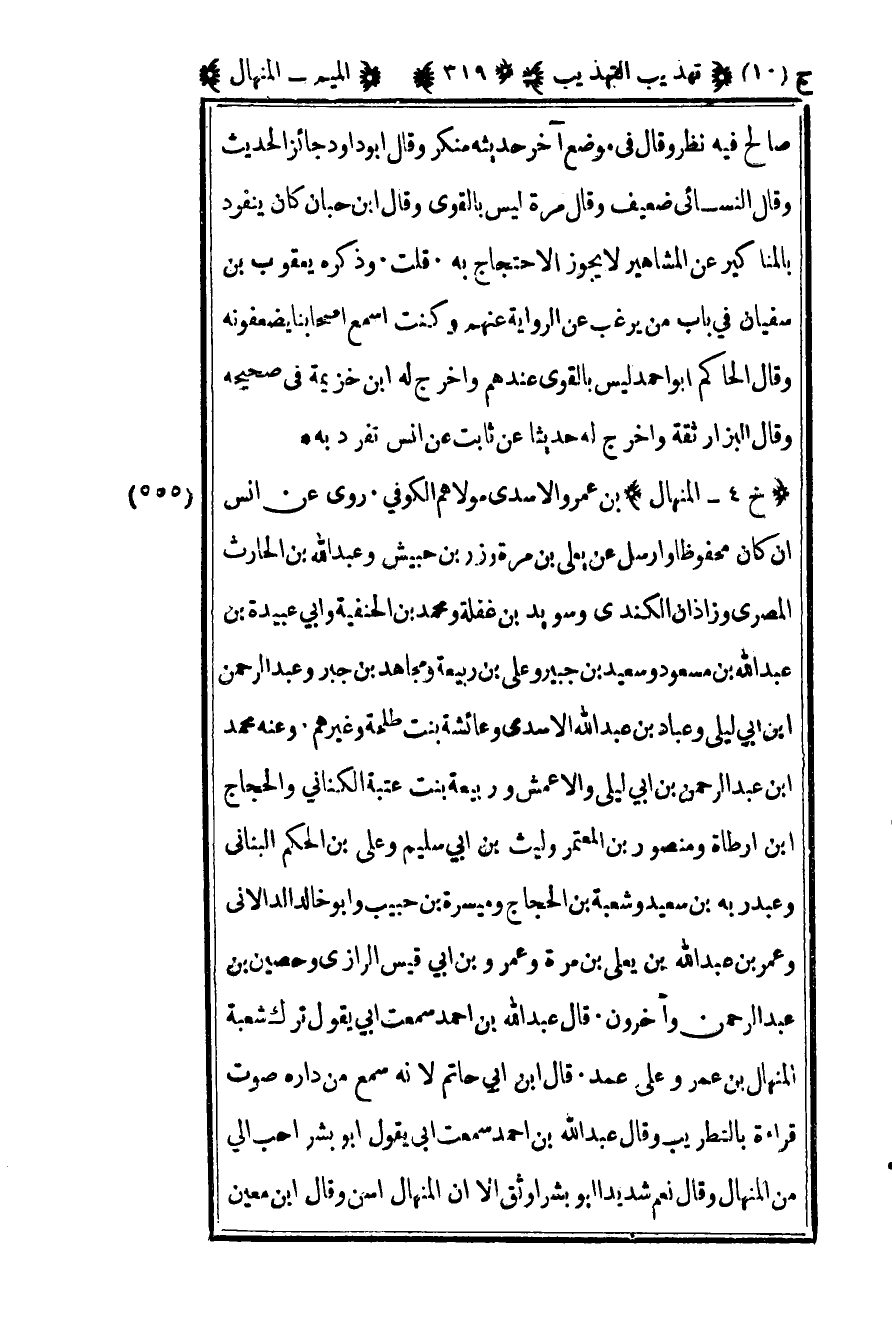 ج (١٠) ﴿ تهذيب التهذيب ﴾ ﴿ ٣١٩ ﴾ ﴿ الميم ـ المنهال ﴾
صالح فيه نظر وقال في موضع آخر حديثه منكر وقال ابو داود جائز الحديث
وقال النسائى ضعيف وقال مرة ليس بالقوى وقال ابن حبان كان ينفرد
بالمناكير عن المشاهير لا يجوز الاحتجاج به · قلت · وذكره يعقوب بن
سفيان في باب من يرغب عن الرواية عنهم وكنت اسمع اصحابنا يضعفونه
وقال الحاكم ابو احمد ليس بالقوى عندهم واخرج له ابن خزيمة فى صحيحه
وقال البزار ثقة واخرج له حديثا عن ثابت عن انس تفرد به •
﴿ خ ٤ ـ المنهال ﴾ بن عمرو الاسدى مولاهم الكوفي · روى عن انس (٥٥٥)
ان كان محفوظا وارسل عن يعلى بن مرة وزر بن حبيش وعبدالله بن الحارث
المصرى وزاذان الكندى وسويد بن غفلة ومحمد بن الحنفية وابي عبيدة بن
عبدالله بن مسعود وسعيد بن جبير وعلى بن ربيعة ومجاهد بن جبر وعبدالرحمن
ابن ابي ليلى وعباد بن عبدالله الاسدى وعائشة بنت طلحة وغيرهم · وعنه محمد
ابن عبدالرحمن بن ابي ليلى والاعمش وربيعة بنت عتبة الكناني والحجاج
ابن ارطاة ومنصور بن المعتمر وليث بن ابي سليم وعلى بن الحكم البنانى
وعبدربه بن سعيد وشعبة بن الحجاج وميسرة بن حبيب وابو خالد الدالانى
وعمر بن عبدالله بن يعلى بن مرة وعمرو بن ابي قيس الرازى وحصين بن
عبدالرحمن وآخرون · قال عبدالله بن احمد سمعت ابي يقول ترك شعبة
المنهال بن عمرو على عمد · قال ابن ابي حاتم لانه سمع من داره صوت
قراءة بالتطريب وقال عبدالله بن احمد سمعت ابى يقول ابو بشر احب الي
من المنهال وقال نعم شديدا ابو بشر اوثق الا ان المنهال اسن وقال ابن معين